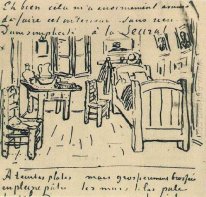 Eh bien cela m'a enormement amusé
de faire cet interieur sans rien
d'une simplicité à la Seurat
A teintes plates mais grossierement brossées
en pleine pâte les murs lilas pâle